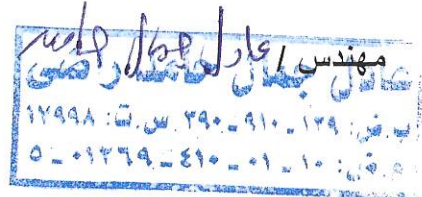 مهندس / عادل جمال حامد
عادل جمال حامد راضى
ب.ض: ١٣٩ - ٩١٠ - ٣٩٠ س.ت: ١٢٩٩٨
م.ض: ١٠ - ٠١ - ٤١٠ - ٠١٣٦٩ - ٥